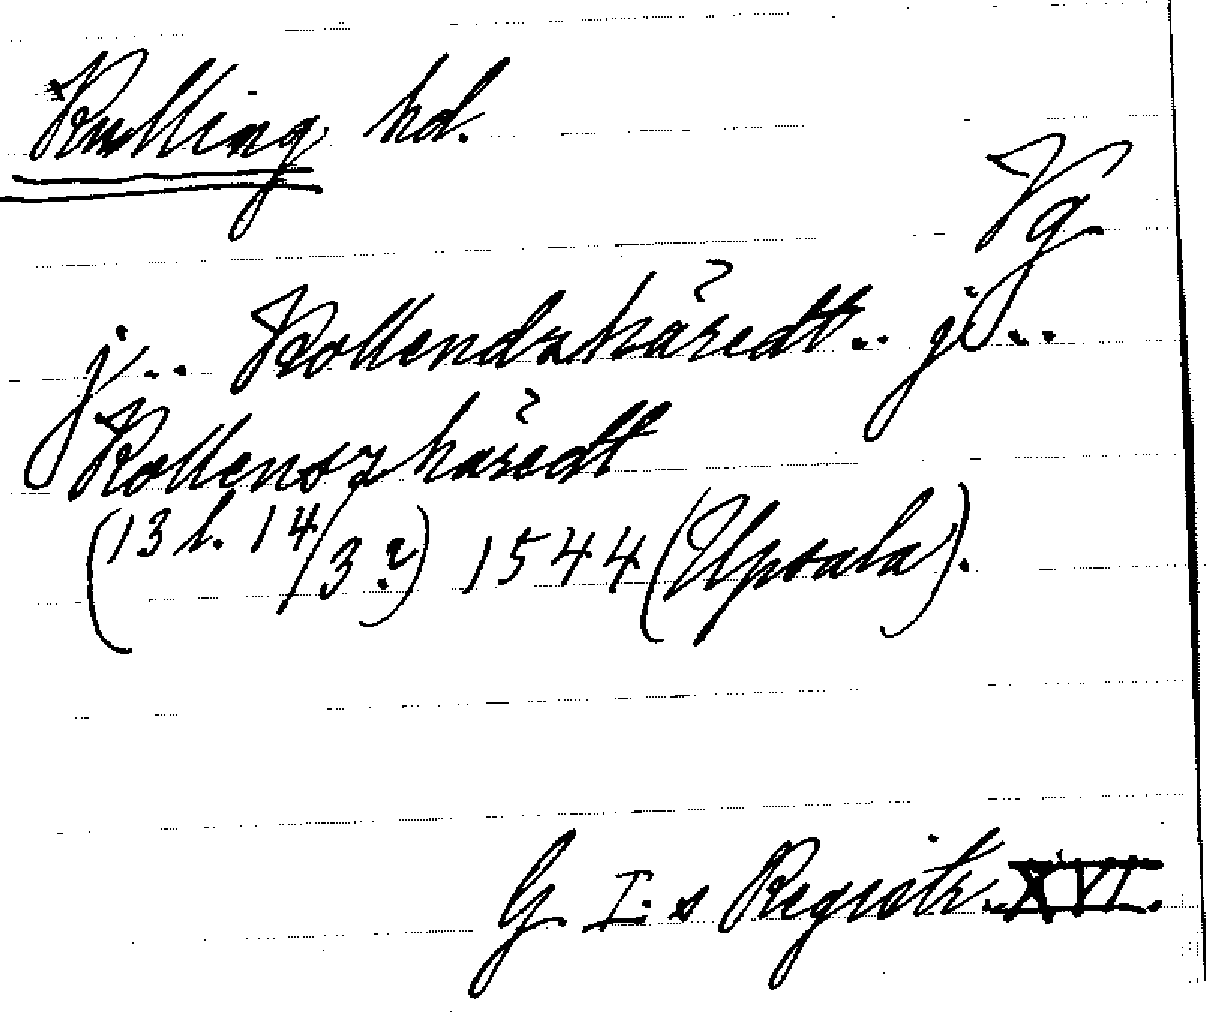 Kulling hd.
Vg
j .. Kollendzhäredt .. j ..
Kollenszhäredt
(13 l. 14/3?) 1544 (Upsala).
G. I:s Registr. XVI.